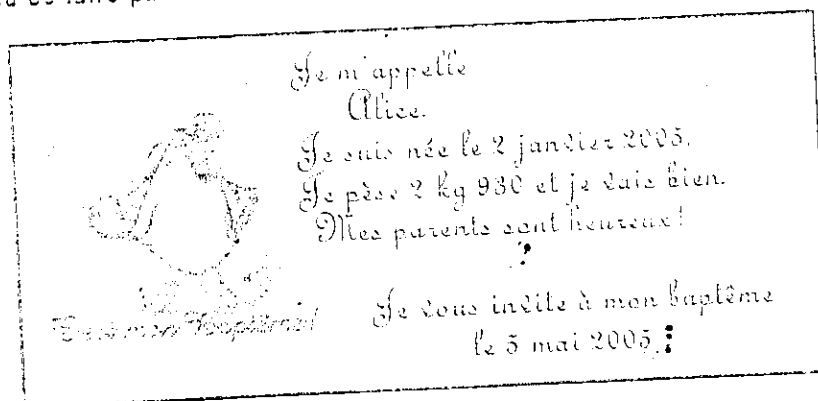 Je m'appelle
Alice.
Je suis née le 2 janvier 2005.
Je pèse 2 kg 930 et je vais bien.
Mes parents sont heureux !
Je vous invite à mon baptême
le 5 mai 2005.
mon baptême!